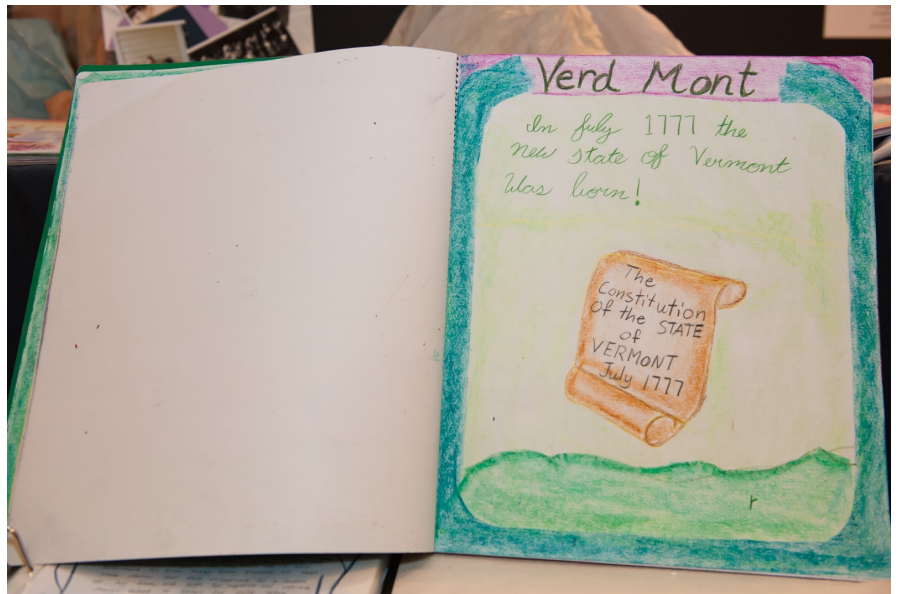 Verd Mont
In July 1777 the
new state of Vermont
Was born!
The
Constitution
Of the STATE
of
VERMONT
July 1777